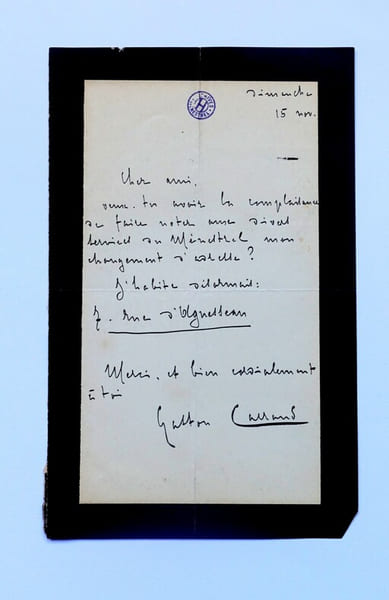 Dimanche
15 nov.
Cher ami,
veux-tu avoir la complaisance
de faire noter aux divers
services du Ménestrel mon
changement d'adresse ?
J'habite désormais :
7. rue d'Aguesseau
Merci, et bien cordialement
à toi
Gaston Carraud